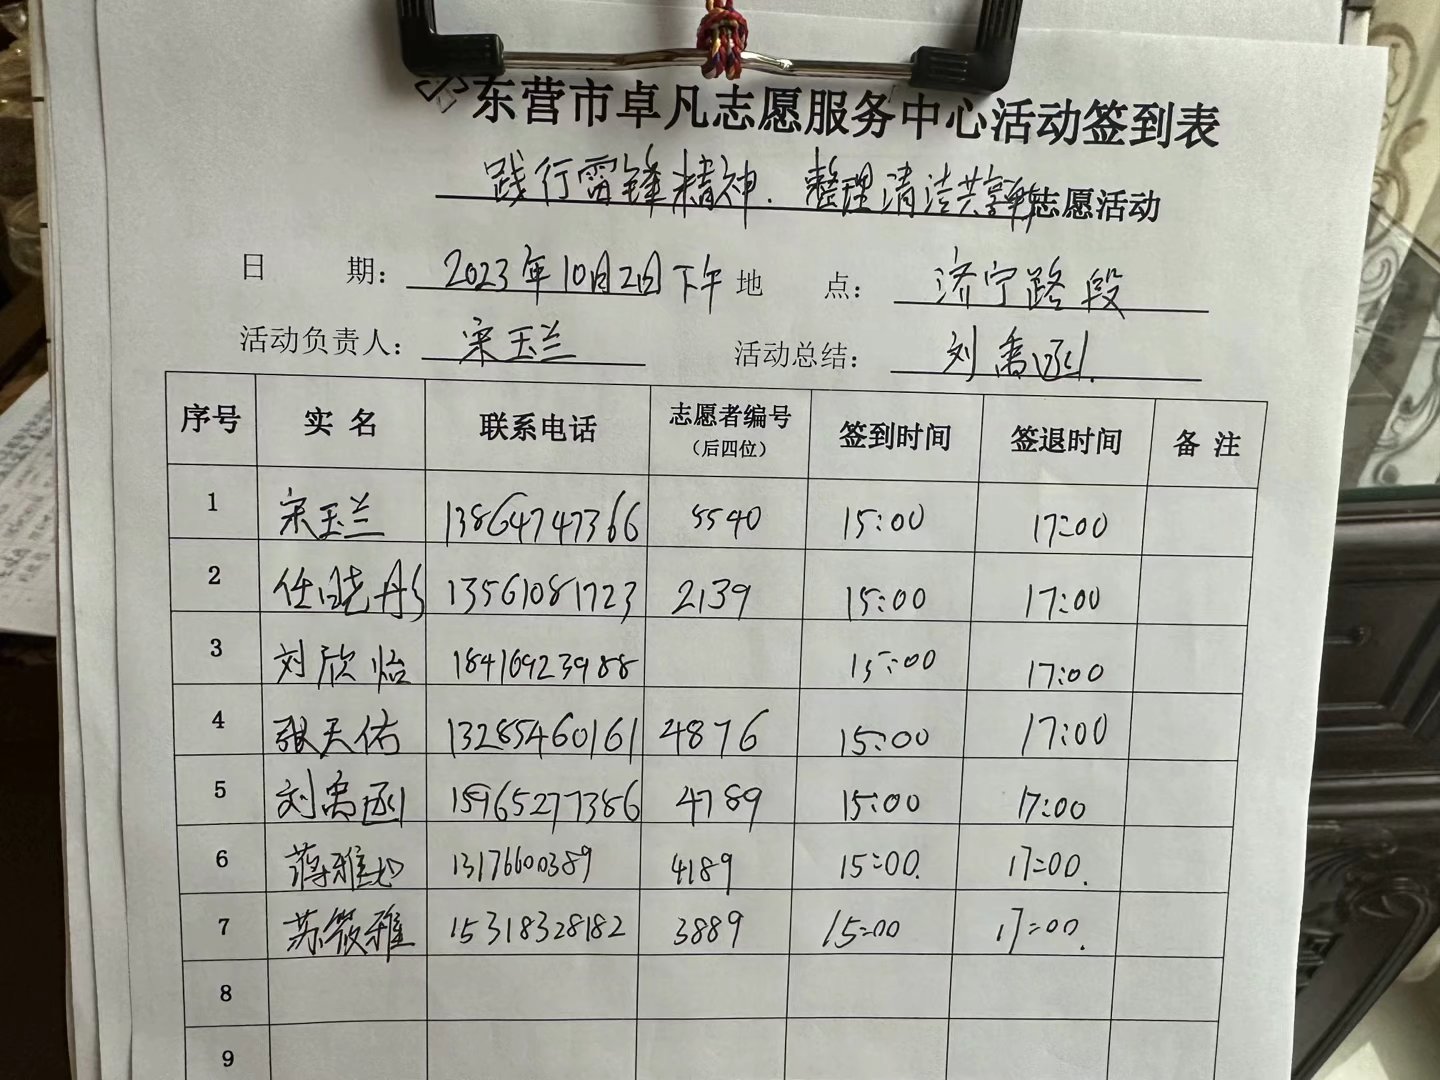 东营市卓凡志愿服务中心活动签到表
践行雷锋精神．整理清洁共享单车志愿活动
日 期：2023年10月2日下午 地 点：济宁路段
活动负责人：宋玉兰 活动总结：刘禹函
序号 实名 联系电话 志愿者编号（后四位） 签到时间 签退时间 备注
1 宋玉兰 13864747366 5540 15:00 17:00
2 任晓彤 13561081723 2139 15:00 17:00
3 刘欣怡 18416923988 15:00 17:00
4 张天佑 13285460161 4876 15:00 17:00
5 刘禹函 15965277386 4789 15:00 17:00
6 蒋雅 13176600389 4189 15:00. 17:00.
7 苏筱雅 15318328182 3889 15:00 17:00.
8
9